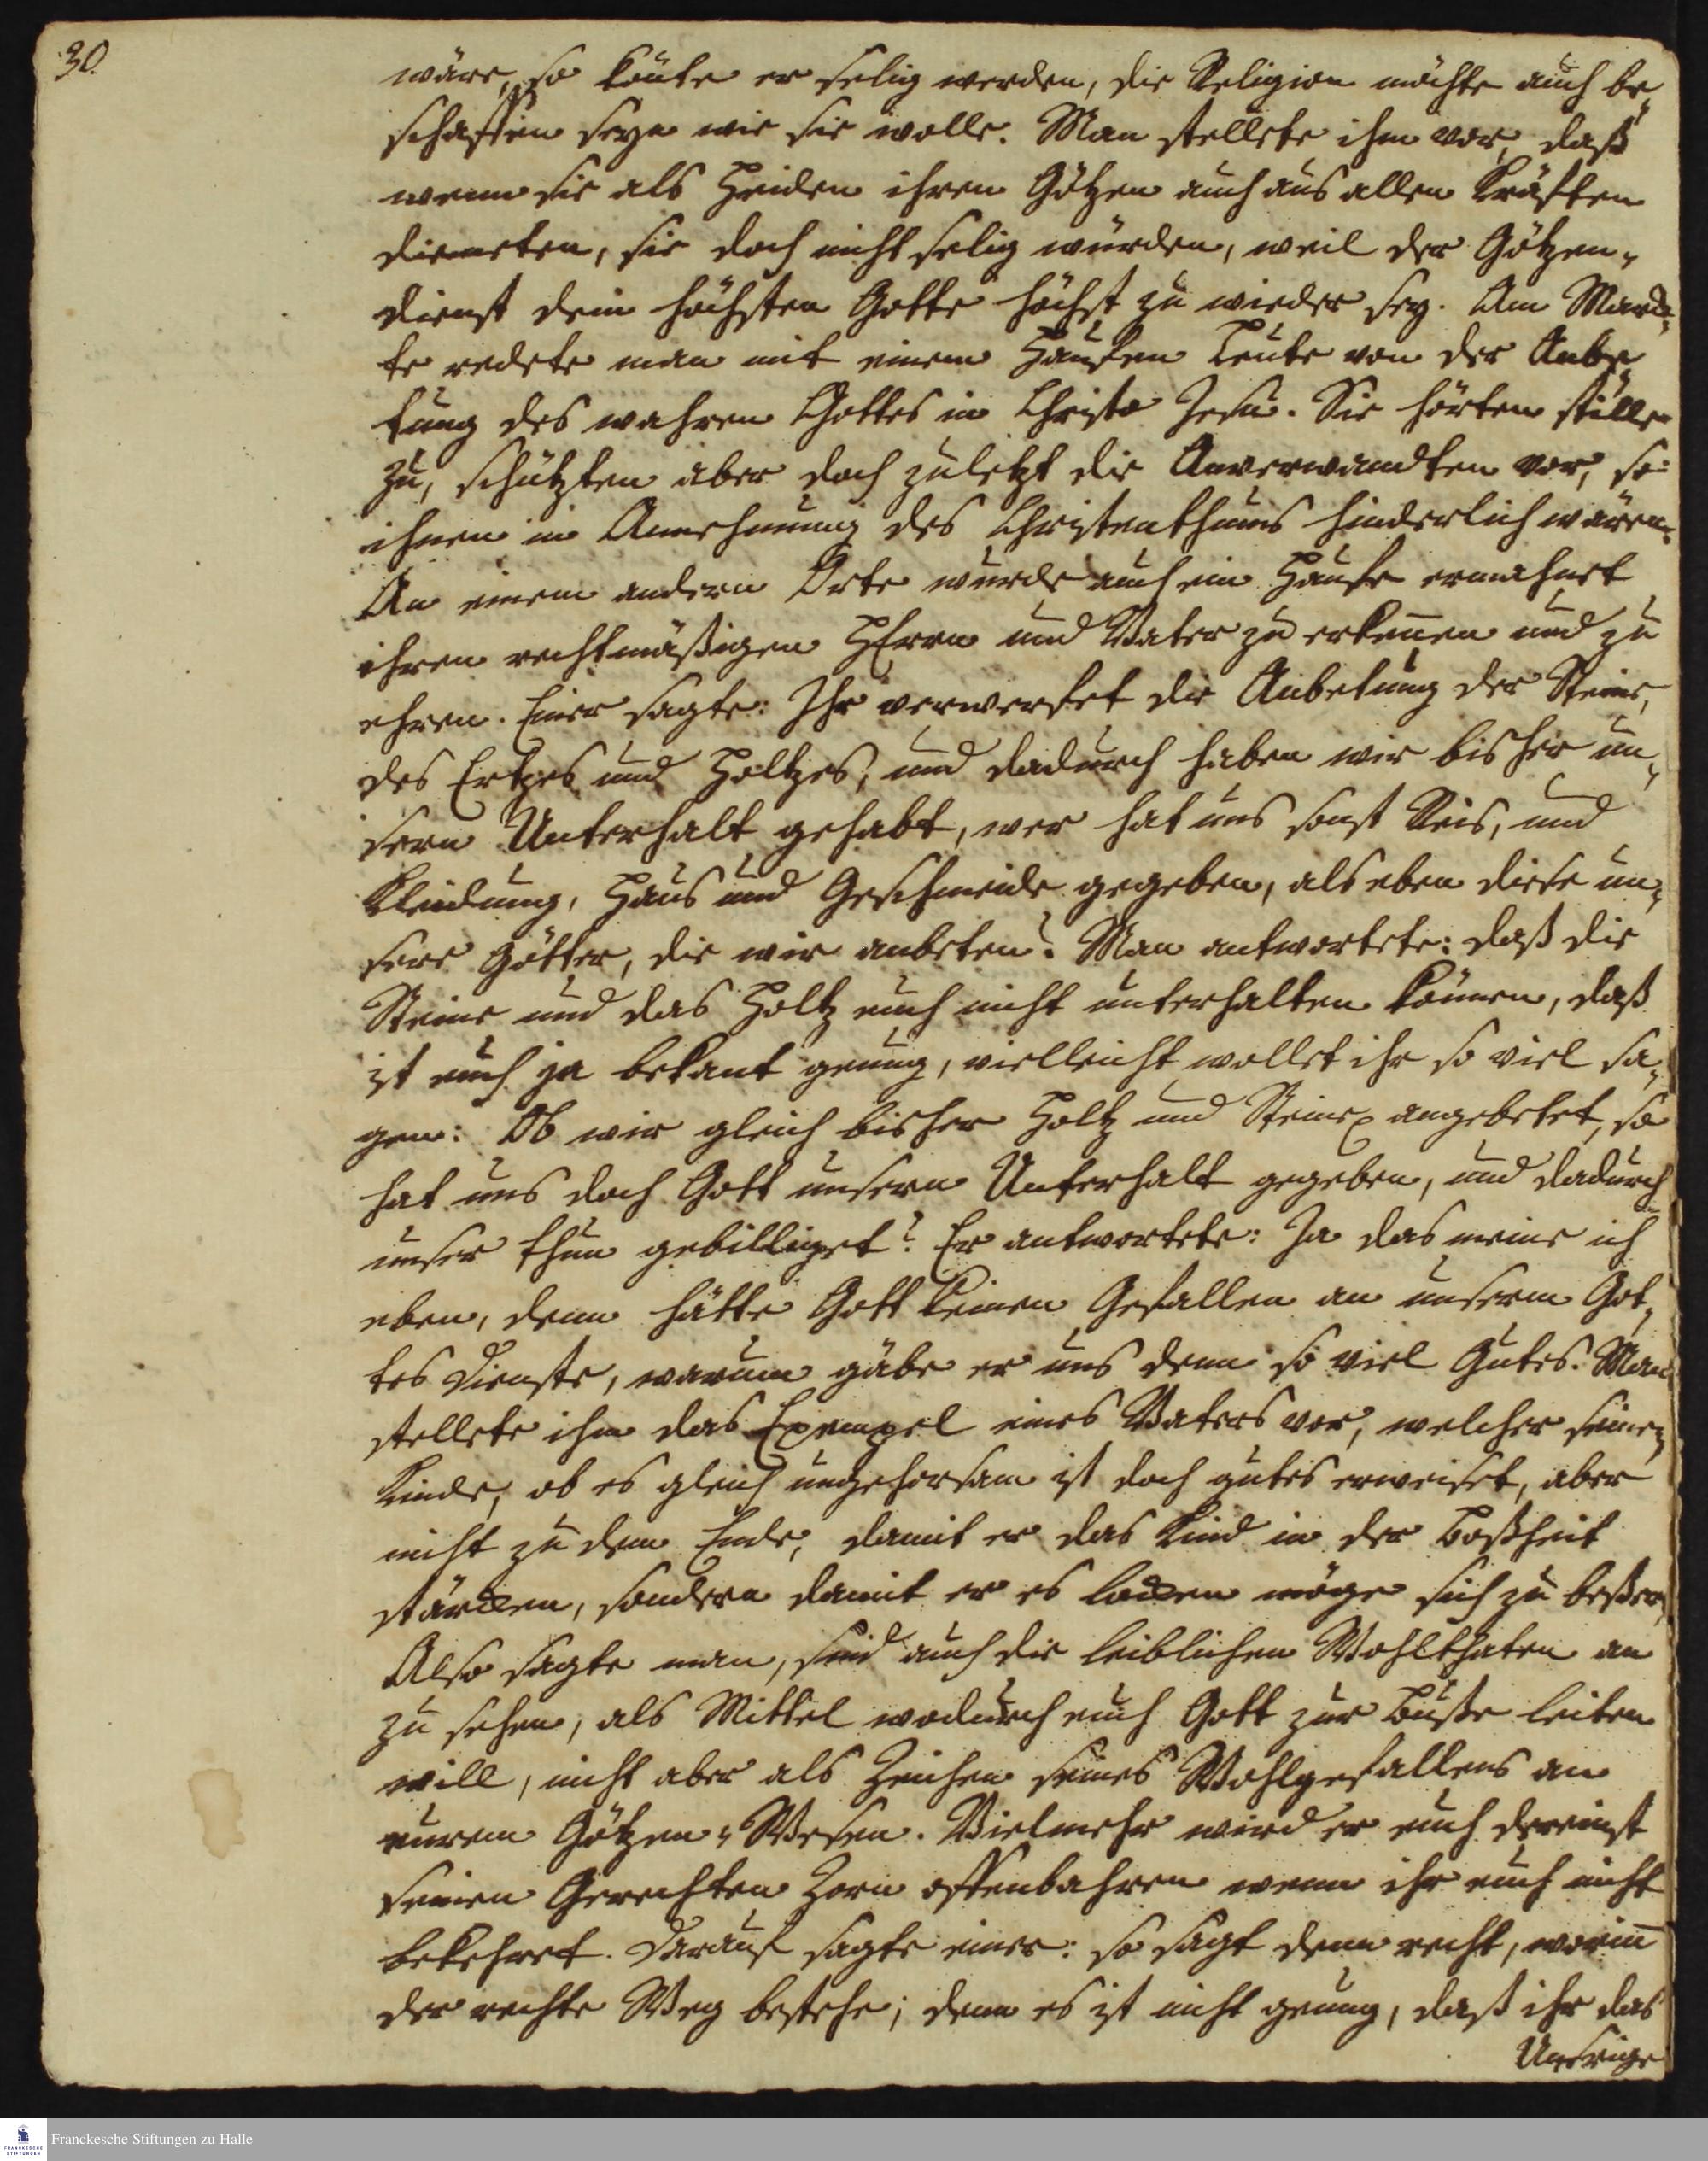 30.
wäre, so könte er selig werden, die Religion möchte auch be„
schaffen seyn wie sie wolle. Man stellete ihm vor, daß
wenn sie als Heiden ihren Götzen auch aus allen Kräften
dieneten, sie doch nicht selig würden, weil der Götzen„
dienst dem höchsten Gotte höchst zu wieder sey. Am Marck„
te redete man mit einem Haufen Leute von der Anbe„
tung des wahren Gottes in Christo Jesu. Sie hörten stille
zu, schützten aber doch zuletzt die Anverwandten vor, so
ihnen in Annehmung des Christenthums hinderlich wären.
An einem andern Orte wurde auch ein Haufe ermahnet
ihren rechtmäßigen HErrn und Vater zu erkennen und zu
ehren. Einer sagte: Ihr verwerfet die Anbetung der Steine,
des Ertzes und Holtzes, und dadurch haben wir bisher un„
sern Unterhalt gehabt, wer hat uns sonst Reis, und
Kleidung, Haus und Geschmeide gegeben, als eben diese un„
sere Götter, die wir anbeten? Man antwortete: daß die
Steine und das Holtz euch nicht unterhalten können, daß
ist euch ja bekant genug, vielleicht wollet ihr so viel sa„
gen: Ob wir gleich bisher Holtz und Steine angebetet, so
hat uns doch Gott unsern Unterhalt gegeben, und dadurch
unser thun gebilliget? Er antwortete: Ja das meine ich
eben, denn hätte Gott keinen Gefallen an unserm Got„
tes Dienste, warum gäbe er uns denn so viel Gutes. Man
stellete ihm das Exempel eines Vaters vor, welcher seinem
Kinde, ob es gleich ungehorsam ist doch gutes erweiset, aber
nicht zu dem Ende, damit er das Kind in der Boßheit
stärcken, sondern damit er es locken möge sich zu beßern,
Also sagte man, sind auch die leiblichen Wohlthaten an
zu sehen, als Mittel wodurch euch Gott zur Buße leiten
will, nicht aber als Zeichen seines Wohlgefallens an
eurem Götzen„Wesen. Vielmehr wird er euch dereinst
seinen Gerechten Zorn offenbahren wenn ihr euch nicht
bekehret. Darauf sagte einer: so sagt denn recht, worin
der rechte Weg bestehe; denn es ist nicht genug, daß ihr das
Unsrige
FRANCKESCHE STIFTUNGEN
Franckesche Stiftungen zu Halle